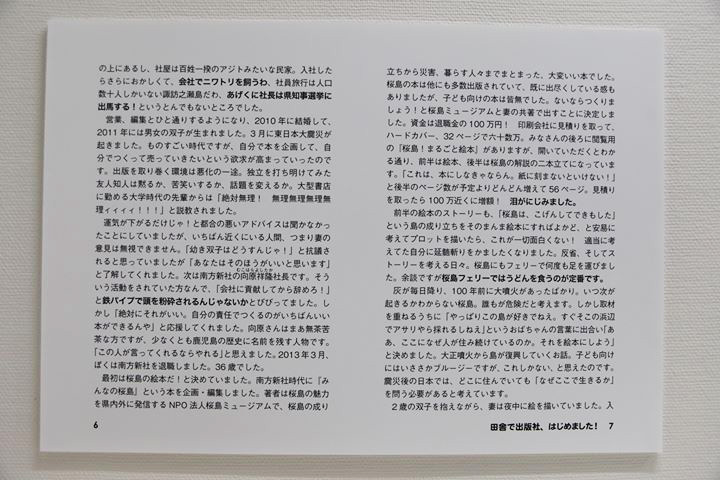 の上にあるし、社屋は百姓一揆のアジトみたいな民家。入社した
らさらにおかしくて、会社でニワトリを飼うわ、社員旅行は人口
数十人しかいない諏訪之瀬島だわ、あげくに社長は県知事選挙に
出馬する！というとんでもないところでした。
営業、編集とひと通りするようになり、2010年に結婚して、
2011年には男女の双子が生まれました。3月に東日本大震災が
起きました。ものすごい時代ですが、自分で本を企画して、自
分でつくって売っていきたいという欲求が高まっていったので
す。出版を取り巻く環境は悪化の一途。独立を打ち明けてみた
友人知人は黙るか、苦笑いするか、話題を変えるか。大型書店
に勤める大学時代の先輩からは「絶対無理！　無理無理無理無
理ィィィィ！！！」と説教されました。
運気が下がるだけじゃ！と都合の悪いアドバイスは聞かなかっ
たことにしていましたが、いちばん近くにいる人間、つまり妻の
意見は無視できません。「幼き双子はどうすんじゃ！」と抗議さ
れると思っていましたが「あなたはそのほうがいいと思います」
と了解してくれました。次は南方新社の向原祥隆社長です。そう
むこはらよしたか
いう活動をされていた方なんで、「会社に貢献してから辞めろ！」
と鉄パイプで頭を粉砕されるんじゃないかとびびってました。し
かし「絶対にそれがいい。自分の責任でつくるのがいちばんいい
本ができるんや」と応援してくれました。向原さんはまあ無茶苦
茶な方ですが、少なくとも鹿児島の歴史に名前を残す人物です。
「この人が言ってくれるならやれる」と思えました。2013年3月、
ぼくは南方新社を退職しました。36歳でした。
最初は桜島の絵本だ！と決めていました。南方新社時代に『み
んなの桜島』という本を企画・編集しました。著者は桜島の魅力
を県内外に発信するNPO法人桜島ミュージアムで、桜島の成り
6
立ちから災害、暮らす人々までまとまった、大変いい本でした。
桜島の本は他にも多数出版されていて、既に出尽くしている感も
ありましたが、子ども向けの本は皆無でした。ないならつくりま
しょう！と桜島ミュージアムと妻の共著で出すことに決定しま
した。資金は退職金の100万円！　印刷会社に見積りを取って、
ハードカバー、32ページで六十数万。みなさんの後ろに閲覧用
の『桜島！まるごと絵本』がありますが、開いていただくとわか
る通り、前半は絵本、後半は桜島の解説の二本立てになっていま
す。「これは、本にしなきゃならん。紙に刻まないといけない！」
と後半のページ数が予定よりどんどん増えて56ページ。見積り
を取ったら100万近くに増額！　泪がにじみました。
前半の絵本のストーリーも、「桜島は、こげんしてできもした」
という島の成り立ちをそのまんま絵本にすればよかど、と安易に
考えてプロットを描いたら、これが一切面白くない！　適当に考
えてた自分に延髄斬りをかましたくなりました。反省、そしてス
トーリーを考える日々。桜島にもフェリーで何度も足を運びまし
た。余談ですが桜島フェリーではうどんを食うのが定番です。
灰が毎日降り、100年前に大噴火があったばかり。いつ次が
起きるかわからない桜島。誰もが危険だと考えます。しかし取材
を重ねるうちに「やっぱりこの島が好きでねえ。すぐそこの浜辺
でアサリやら採れるしねえ」というおばちゃんの言葉に出合い「あ
あ、ここになぜ人が住み続けているのか。それを絵本にしよう」
と決めました。大正噴火から島が復興していくお話。子ども向け
にはいささかブルージーですが、これしかない、と思えたのです。
震災後の日本では、どこに住んでいても「なぜここで生きるか」
を問う必要があると考えています。
2歳の双子を抱えながら、妻は夜中に絵を描いていました。入
田舎で出版社、はじめました！　7